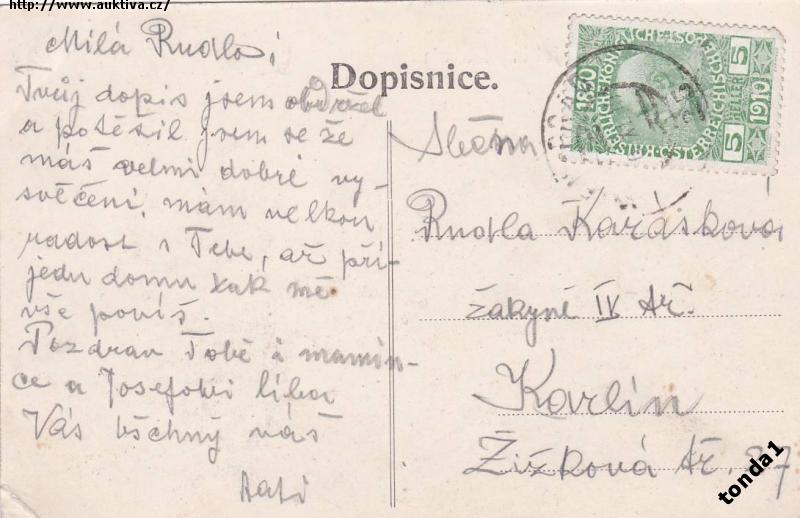 http://www.auktiva.cz/
Milá Rudlo!
Dopisnice.
Tvůj dopis jsem obdržel
a potěšil jsem se že
máš velmi dobré vy-
svěčení, mám velkou
radost z Tebe, až při-
jedu domu tak mě
vše povíš.
Pozdrav Tobě i mamin-
ce a Josefovi líbá
Vás všechny váš
Tati
1830
1910
5
HELLER
5
Slečna
Rudla Karásková
žákyně IV tř.
Karlín
Žižková tř. 37
tonda1